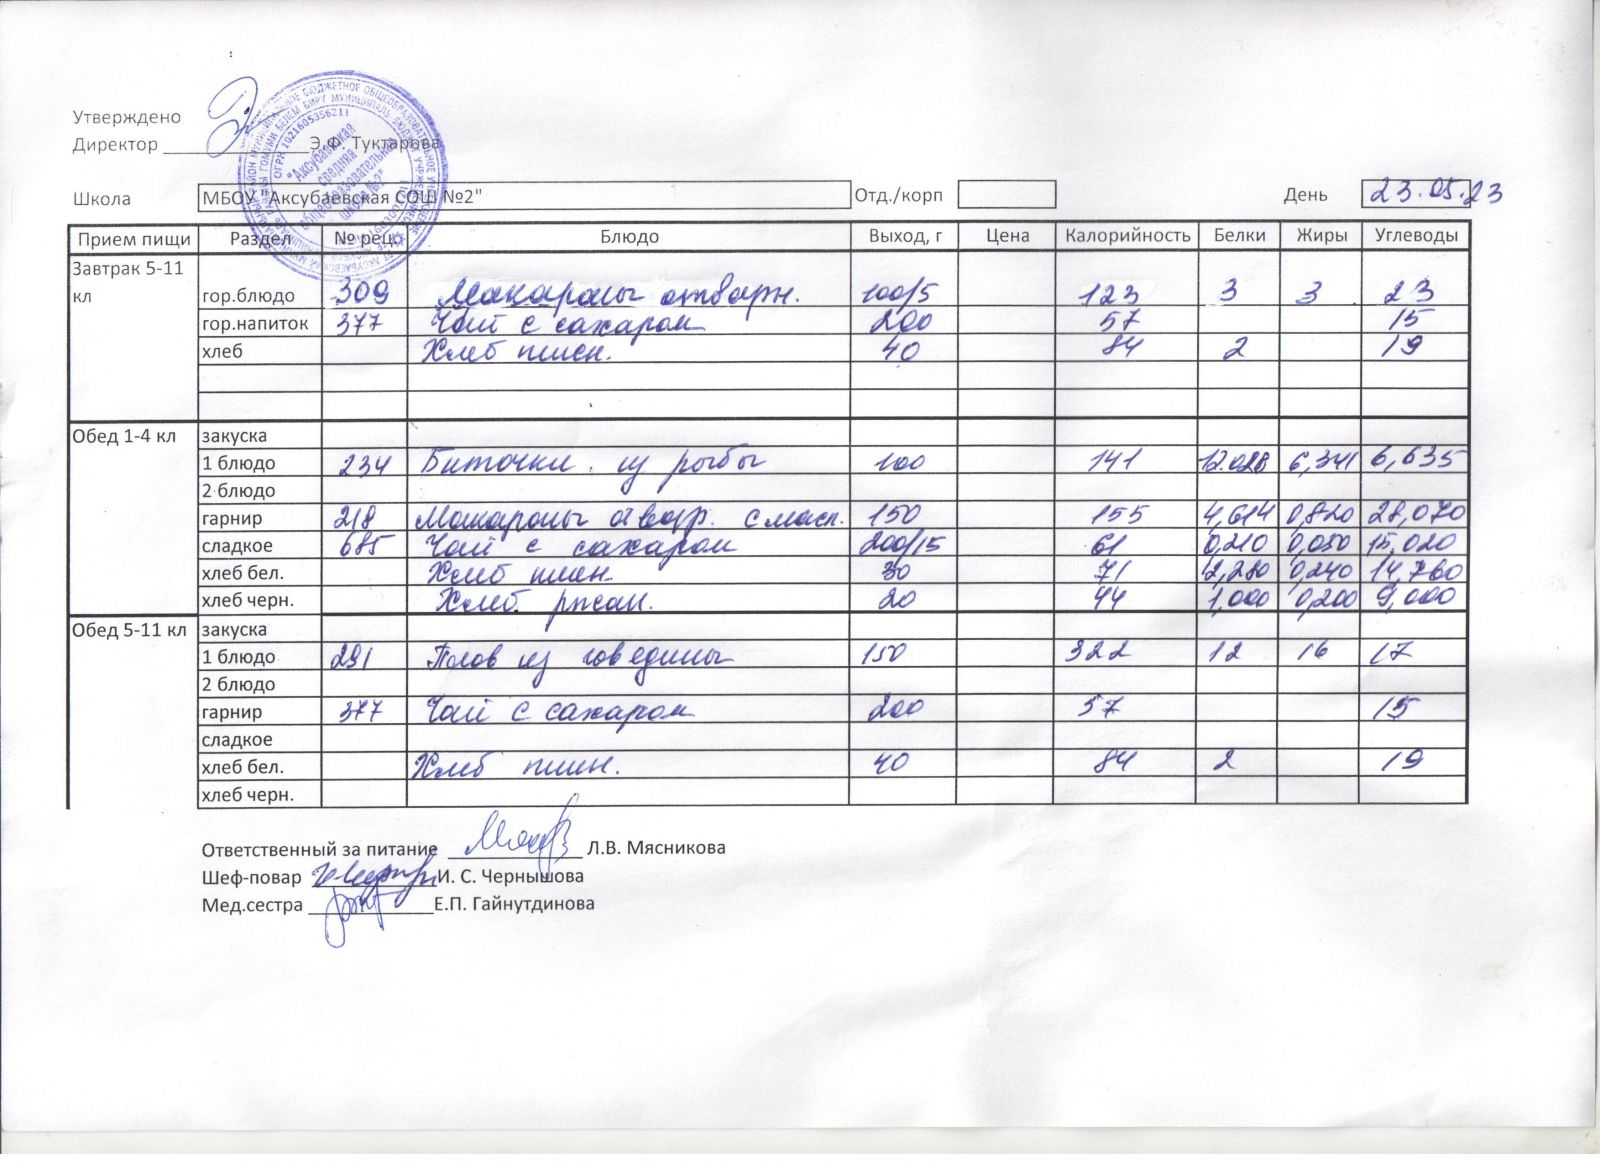 Утверждено
Директор Э.Ф. Туктарова
МУНИЦИПАЛЬНОЕ БЮДЖЕТНОЕ ОБЩЕОБРАЗОВАТЕЛЬНОЕ УЧРЕЖДЕНИЕ
ОГРН 1021605356211
"Аксубаевская
средняя
общеобразовательная
школа №2"
Школа МБОУ "Аксубаевская СОШ №2" Отд./корп День 23.05.23
Прием пищи Раздел № рец. Блюдо Выход, г Цена Калорийность Белки Жиры Углеводы
Завтрак 5-11
кл гор.блюдо 309 Макароны отварн. 100/5 123 3 3 23
гор.напиток 377 Чай с сахаром 200 57 15
хлеб Хлеб пшен. 40 84 2 19
Обед 1-4 кл закуска
1 блюдо 234 Биточки из рыбы 100 141 12.028 6,341 6,635
2 блюдо
гарнир 218 Макароны отвар. с масл. 150 155 4,614 0,820 28,070
сладкое 685 Чай с сахаром 200/15 61 0,210 0,050 15,020
хлеб бел. Хлеб пшен. 30 71 2,280 0,240 14,760
хлеб черн. Хлеб ржан. 20 44 1,000 0,200 9,000
Обед 5-11 кл закуска
1 блюдо 291 Плов из говедины 150 322 12 16 17
2 блюдо
гарнир 377 Чай с сахаром 200 57 15
сладкое
хлеб бел. Хлеб пшен. 40 84 2 19
хлеб черн.
Ответственный за питание Л.В. Мясникова
Шеф-повар И. С. Чернышова
Мед.сестра Е.П. Гайнутдинова